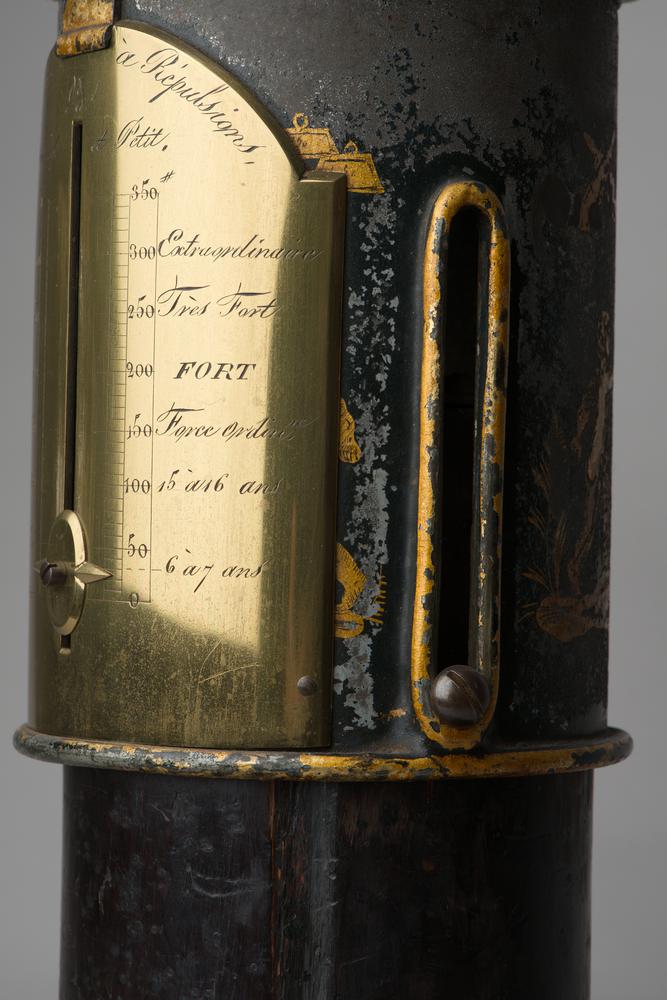 à Répulsions,
Petit,
350 #
300 Extraordinaire
250 Très Fort
200 FORT
150 Force ordin
100 15 à 16 ans
50
6 à 7 ans
0